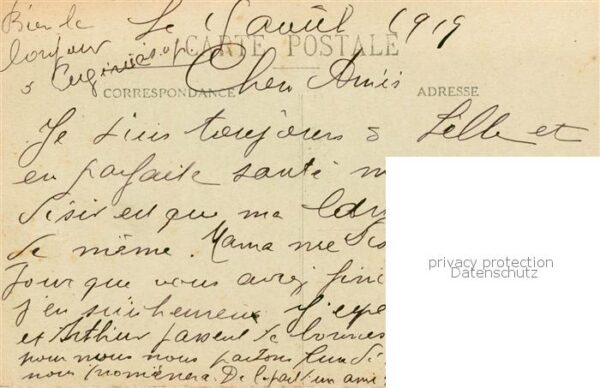 Bien le
bonjour
à Eugénie
Le 5 avril 1919
CARTE POSTALE
Cher Amis
CORRESPONDANCE
ADRESSE
Je suis toujours à Lille et
en parfaite santé
désir est que ma
de même. Mama me
jour que vous avez fini
j'en suis heureux
et Arthur passent de bonnes
pour nous nous partons lundi
nous promener. De la part d'un ami
privacy protection
Datenschutz